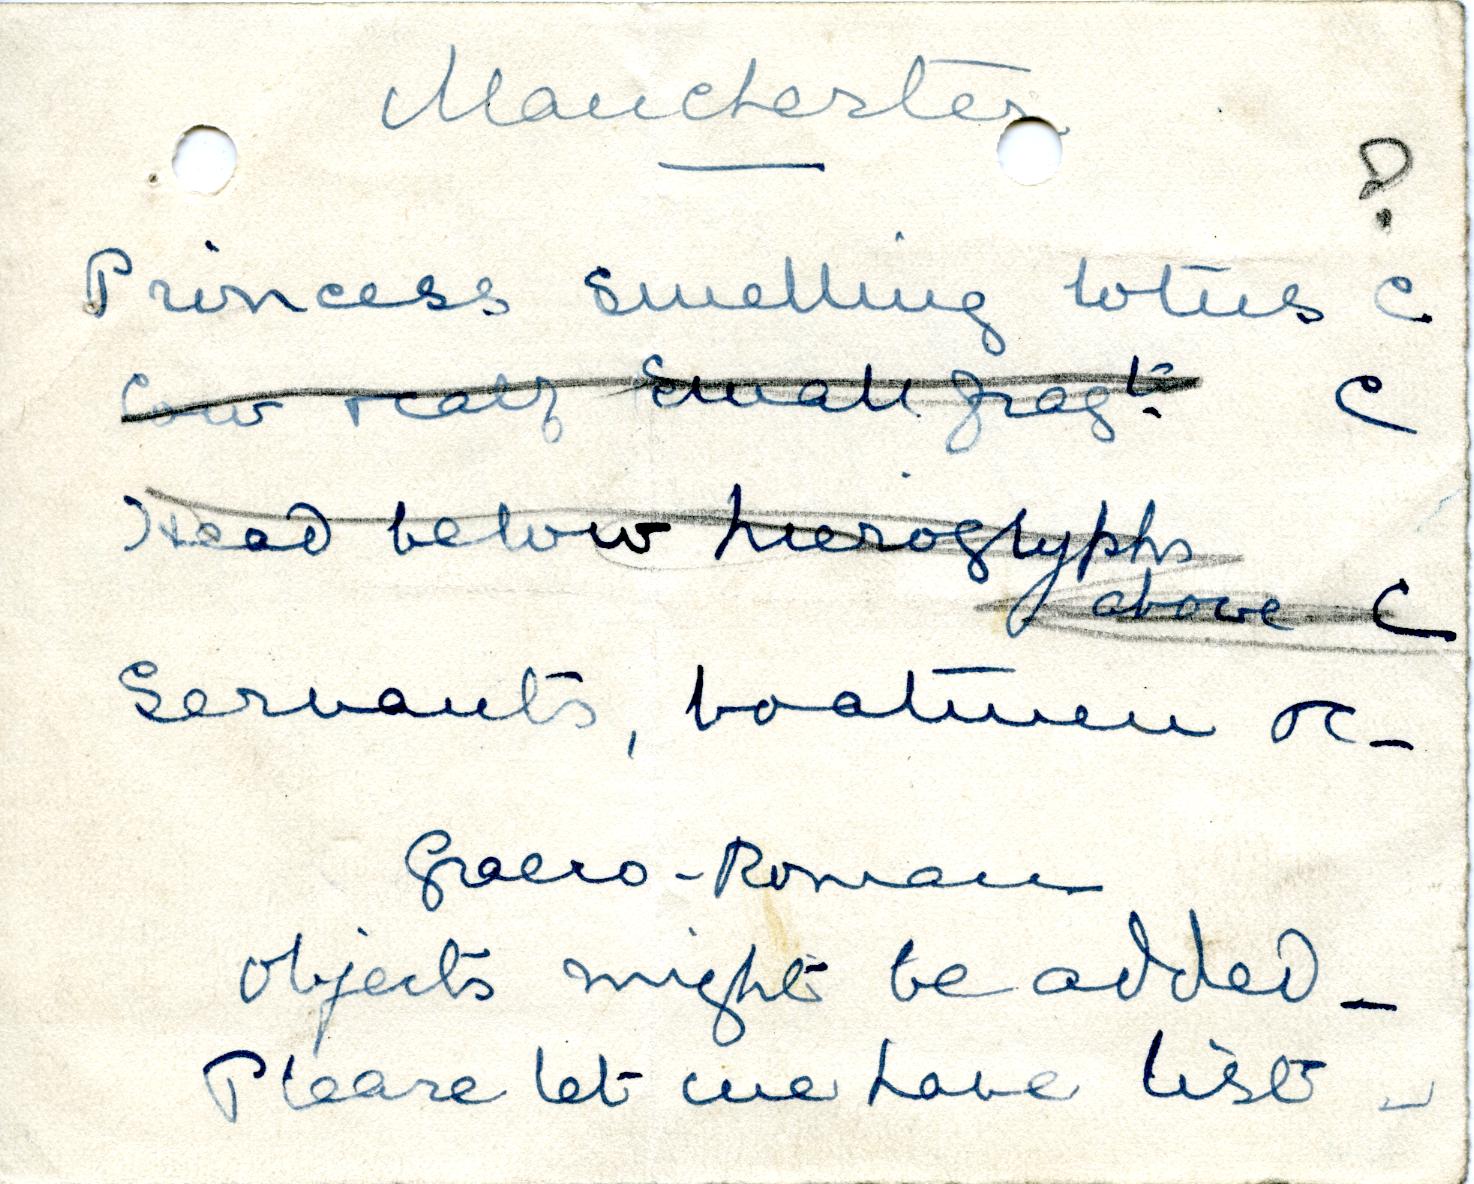 Manchester
?
Princess smelling lotus C
Cow really small fragt. C
Head below hieroglyphs
above C
Servants, boatmen &c -
Graeco-Roman
objects might be added -
Please let me have list -